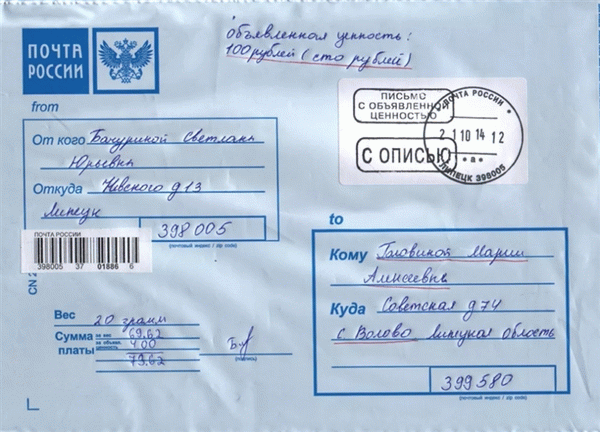 Объявленная ценность:
100 рублей (сто рублей)
ПОЧТА
РОССИИ
from
От кого Бачуриной Светланы
Юрьевны
Откуда Невского д 13
Липецк
398005
(почтовый индекс / zip code)
ПОЧТА РОССИИ
398005 37 01886 6
ПИСЬМО
С ОБЪЯВЛЕННОЙ
ЦЕННОСТЬЮ
С ОПИСЬЮ
ПОЧТА РОССИИ
21 10 14 12
а
ЛИПЕЦК 398005
to
Кому Головиной Марии
Алексеевне
Куда Советская д 74
с Волово Липецкая область
399580
(почтовый индекс / zip code)
Вес 20 грамм
Сумма за вес 69.62
за объявл. ценность 4.00
платы 73.62
(подпись)